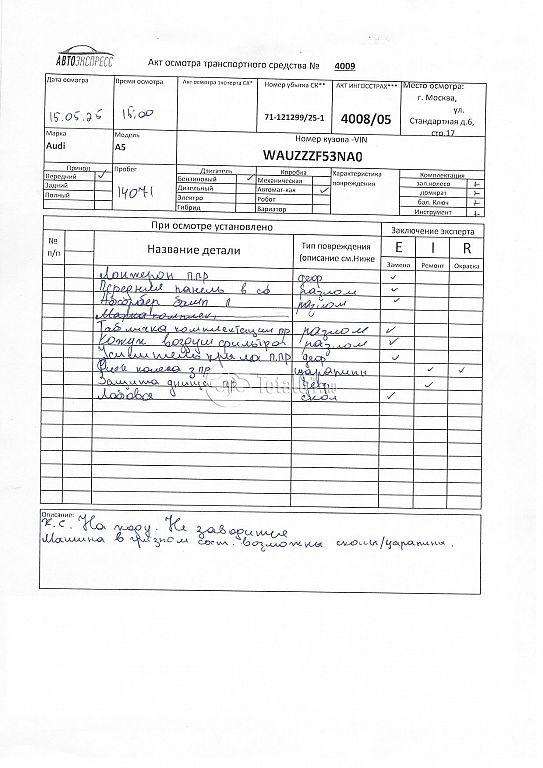 АВТОЭКСПРЕСС
Акт осмотра транспортного средства № 4009
Дата осмотра Время осмотра Акт осмотра эксперта СК* Номер убытка СК** АКТ ИНГОССТРАХ*** Место осмотра:
15.05.25 15:00 71-121299/25-1 4008/05 г. Москва,
ул.
Стандартная д.6,
стр.17
Марка Модель Номер кузова -VIN
Audi A5 WAUZZZF53NA0
Привод Пробег Двигатель Коробка Характеристика повреждения Комплектация
Передний ✓ 14071 Бензиновый ✓ Механическая зап.колесо +
Задний Дизельный Автомат-кая ✓ домкрат +
Полный Электро Робот бал. Ключ +
Гибрид Вариатор Инструмент +
При осмотре установлено Заключение эксперта
№ п/п Название детали Тип повреждения (описание см.Ниже E I R
Замена Ремонт Окраска
Лонжерон п.пр деф ✓
Передняя панель в сб разлом ✓
Абсорбер бамп п разлом ✓
Табличка комплектации пр разлом ✓
Кожух воздуш фильтра разлом ✓
Усилитель крыла п.пр деф ✓
Диск колеса з.пр царапины ✓ ✓
Защита днища пр деф ✓
Лобовое скол ✓
Total01.ru
Описание:
К.С. На ходу. Не заводится
Машина в грязном сост. возможны сколы/царапины.